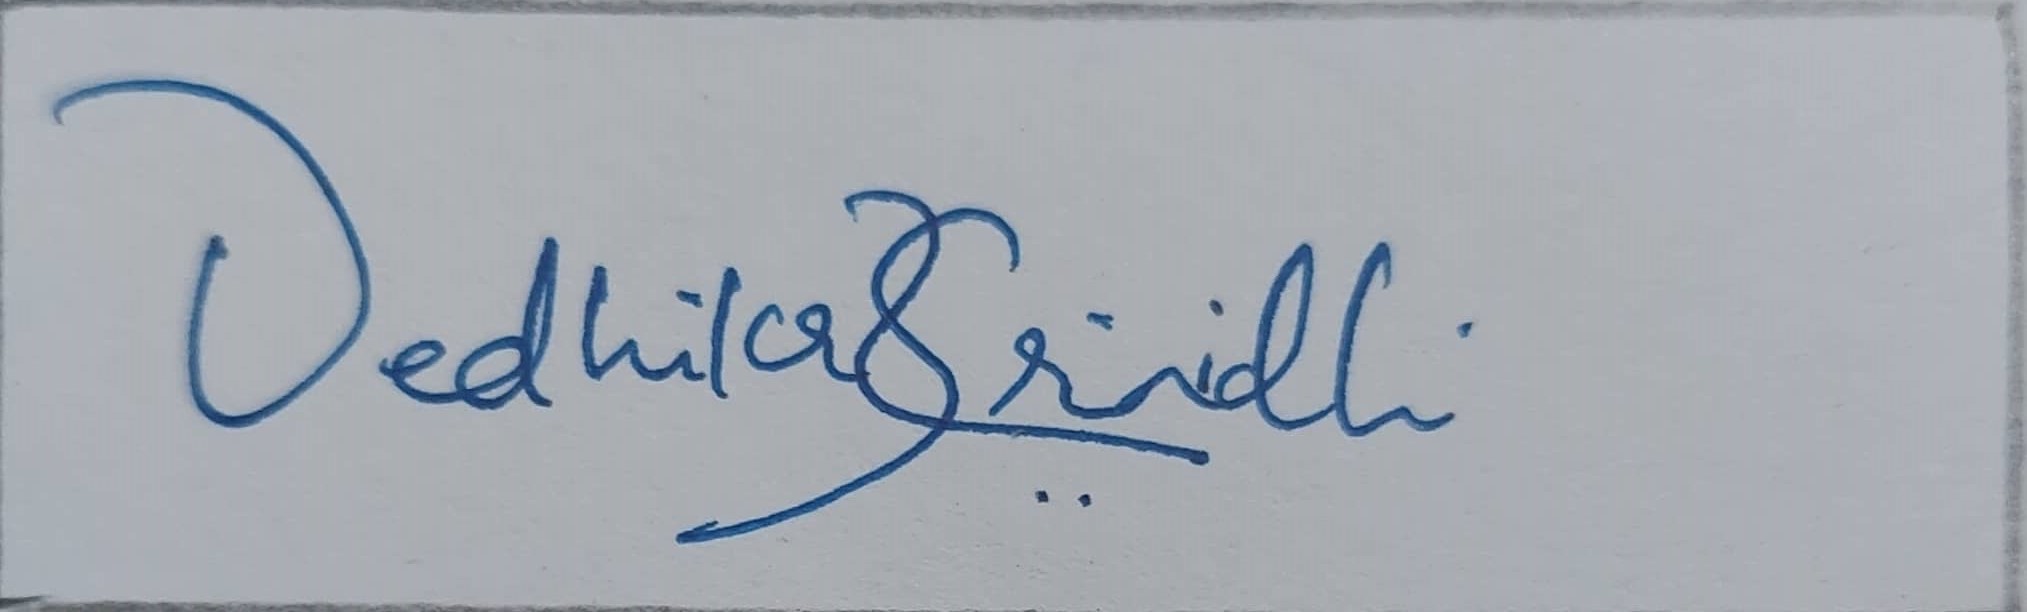 Vedhika Srinidhi